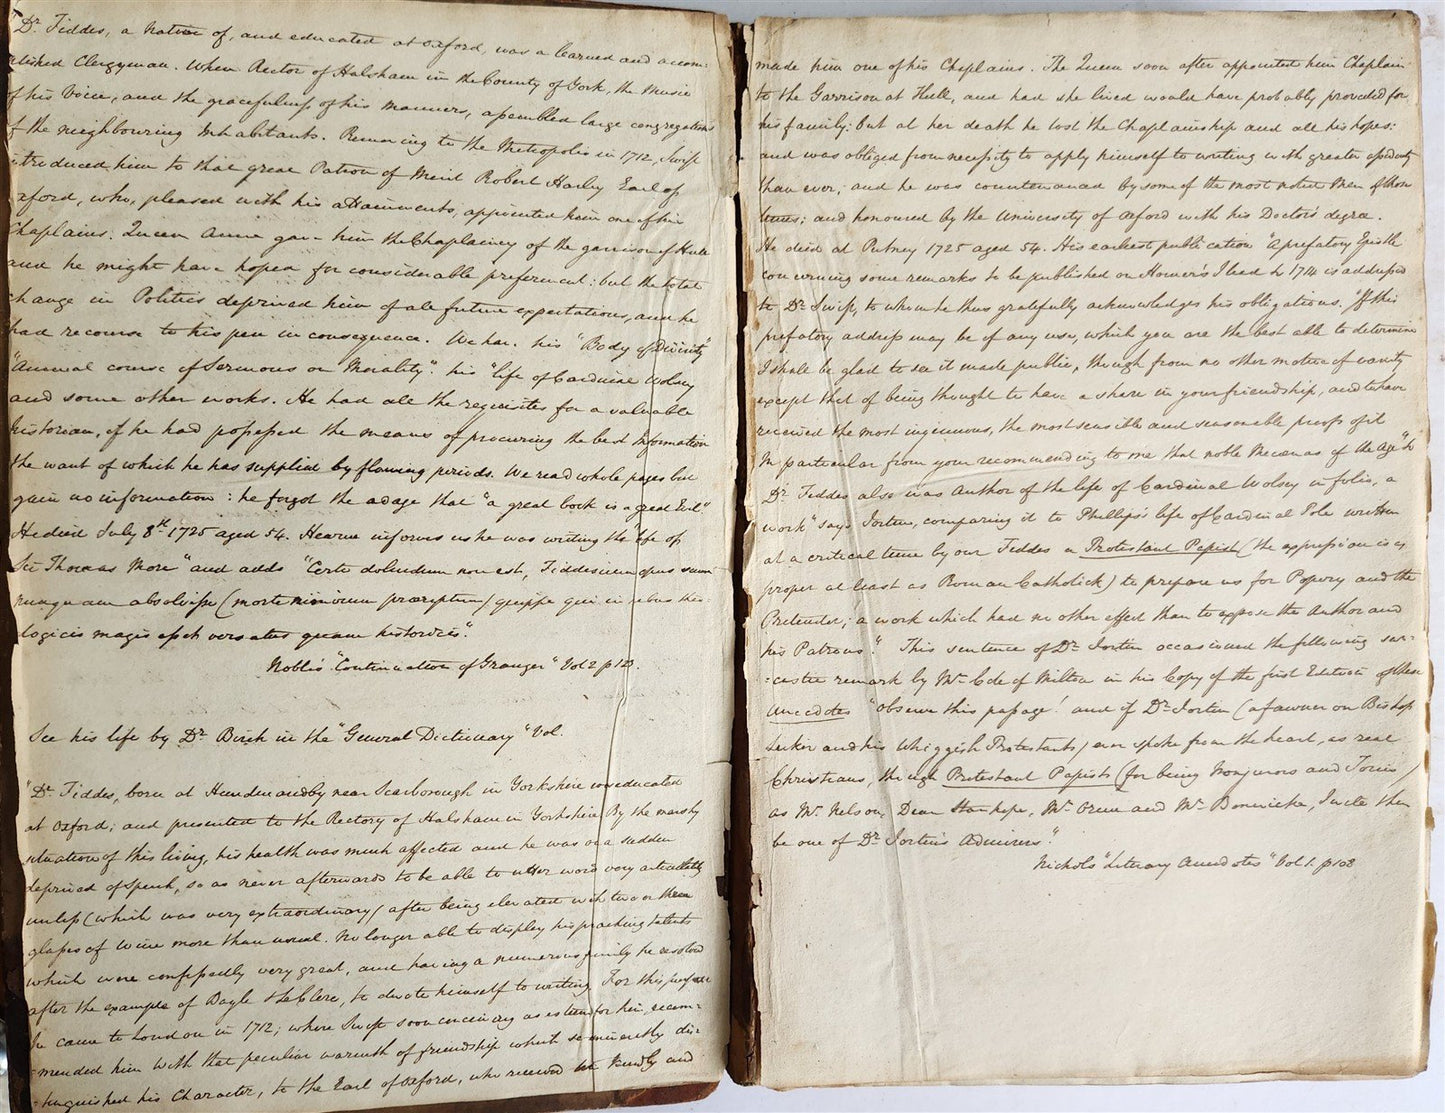 Dr. Fiddes, a native of, and educated at Oxford, was a learned and accom-
plished Clergyman. When Rector of Halsham in the County of York, the Music
of his Voice, and the gracefulness of his manners, assembled large congregations
of the neighbouring Inhabitants. Removing to the Metropolis in 1712, Swift
introduced him to that great Patron of Merit Robert Harley Earl of
Oxford, who, pleased with his attainments, appointed him one of his
Chaplains. Queen Anne gave him the Chaplaincy of the garrison of Hull
and he might have hoped for considerable preferment: but the total
change in Politics deprived him of all future expectations, and he
had recourse to his pen in consequence. We have his "Body of Divinity"
"Annual course of Sermons on Morality". his "life of Cardinal Wolsey
and some other works. He had all the requisites for a valuable
historian, if he had possessed the means of procuring the best Information
the want of which he has supplied by flowing periods. We read whole pages but
gain no information: he forgot the adage that "a great book is a great Evil."
He died July 8th 1725 aged 54. Hearne informs us he was writing the "life of
Sir Thomas More" and adds "Certe dolendum non est, Fiddesium opus suum
nunquam absolvisse (morte nimirum præreptum) quippe qui in rebus theo-
logicis magis esset versatus quam historicis".
Noble's "Continuation of Granger" Vol 2 p 12.
See his life by Dr. Birch in the "General Dictionary" Vol.
"Dr. Fiddes, born at Hundmandby near Scarborough in Yorkshire was educated
at Oxford; and presented to the Rectory of Halsham in Yorkshire. By the marshy
situation of this living, his health was much affected and he was on a sudden
deprived of Speech, so as never afterwards to be able to utter word very articulately
unless (which was very extraordinary) after being elevated with two or three
glasses of wine more than usual. No longer able to display his preaching talents
which were confessedly very great, and having a numerous family he resolved
after the example of Bayle & LeClerc, to devote himself to writing. For this purpose
he came to London in 1712; where Swift soon conceiving an esteem for him, recom-
-mended him with that peculiar warmth of friendship which so eminently dis-
-tinguished his Character, to the Earl of Oxford, who received him kindly and
made him one of his Chaplains. The Queen soon after appointed him Chaplain
to the Garrison at Hull, and had she lived would have probably provided for
his family: but at her death he lost the Chaplainship and all his hopes:
and was obliged from necessity to apply himself to writing with greater assiduity
than ever; and he was countenanced by some of the most noted Men of those
times; and honoured by the University of Oxford with his Doctor's degree.
He died at Putney 1725 aged 54. His earliest publication "A prefatory Epistle
concerning some remarks to be published on Homer's Iliad &c 1714 is addressed
to Dr. Swift, to whom he thus gratefully acknowledges his obligations. "If this
prefatory address may be of any use, which you are the best able to determine
I shall be glad to see it made public, though from no other motive of vanity
except that of being thought to have a share in your friendship, and to have
received the most ingenuous, the most sensible and seasonable proofs of it
In particular from your recommending to me that noble Mecænas of the Age" &c
Dr. Fiddes also was Author of the life of Cardinal Wolsey in folio, a
work" says Jortin, comparing it to Phillips's life of Cardinal Pole "written
at a critical time by our Fiddes a Protestant Papist (the expression is as
proper at least as Roman Catholick) to prepare us for Popery and the
Pretender; a work which had no other effect than to expose the Author and
his Patrons." This sentence of Dr. Jortin occasioned the following sar-
-castic remark by Mr. Cole of Milton in his Copy of the first Edition of these
Anecdotes "observe this passage! and if Dr. Jortin (a fawner on Bishop
and his Whiggish Protestants) ever spoke from the heart, as real
Christians, though Protestant Papists (for being Nonjurors and Tories)
as Mr. Nelson, Dean Stanhope, Mr. and Mr. Bonwicke, I write then
be one of Dr. Jortin's Admirers."
Nichols "Literary Anecdotes" Vol 1. p 108